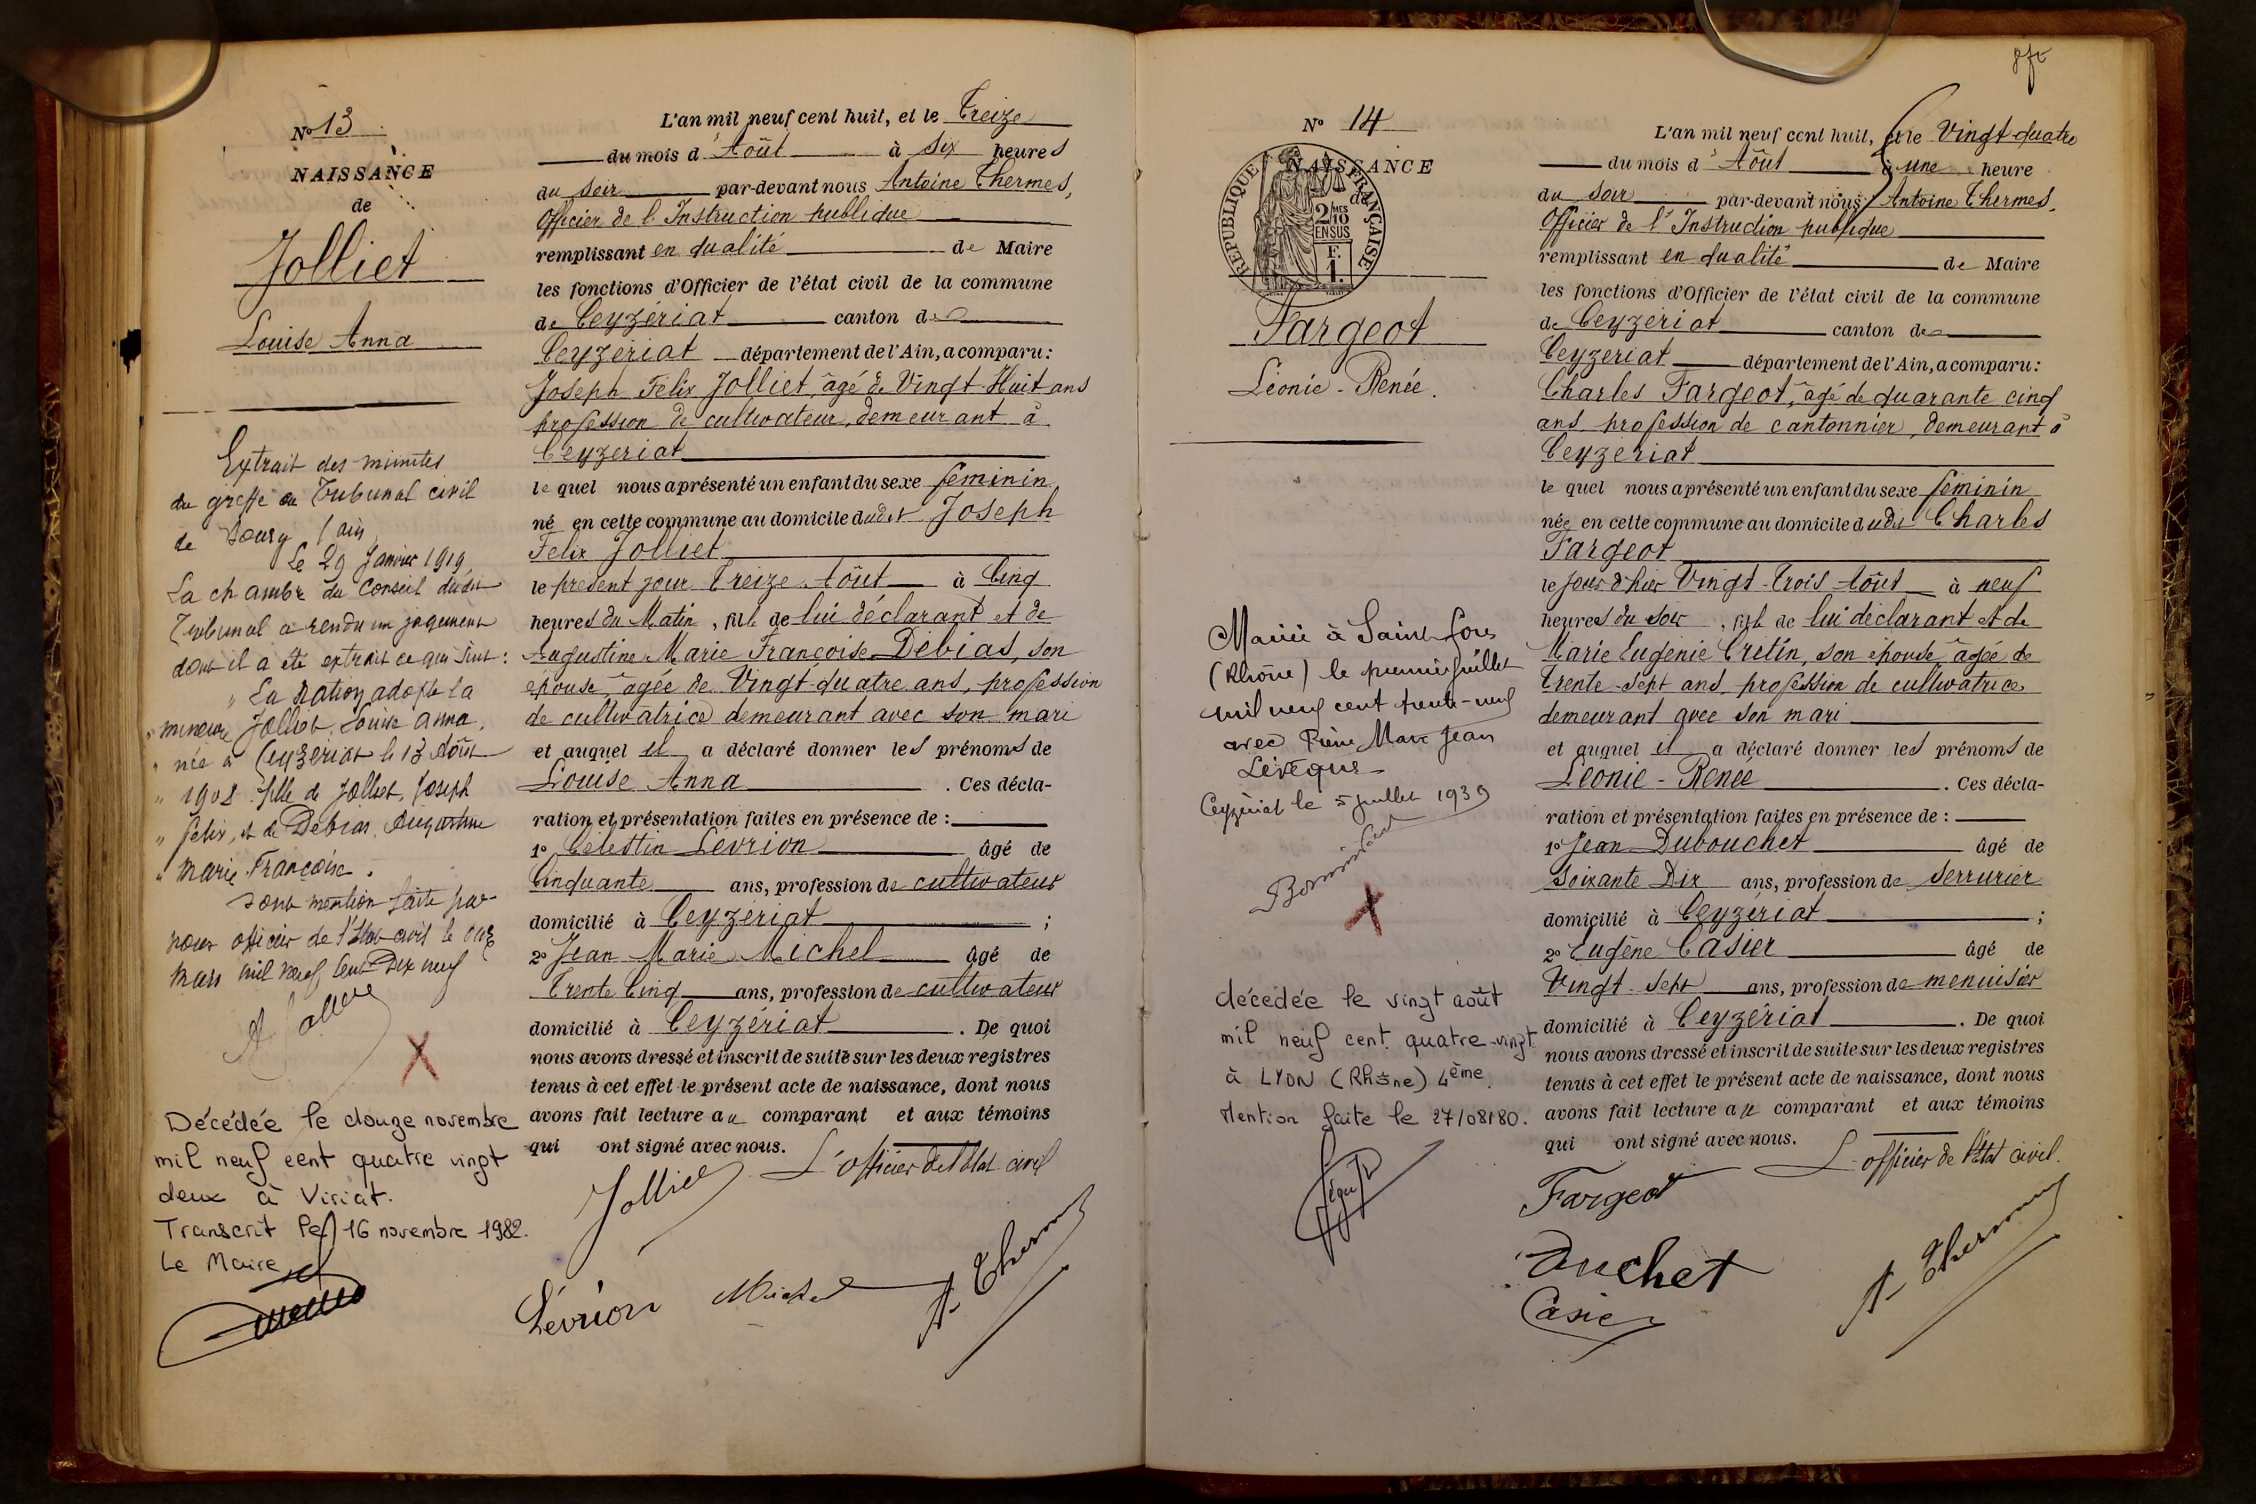 N° 13
NAISSANCE
de
Jolliet
Louise Anna
Extrait des minutes
du greffe du Tribunal civil
de Bourg (ain)
Le 29 Janvier 1919
La chambre du Conseil dudit
Tribunal a rendu un jugement
dont il a été extrait ce qui suit :
" La Nation adopte la
" mineure Jolliet Louise anna,
" née à Ceyzeriat le 13 Aôut
" 1908 fille de Jolliet, Joseph
" felix, et de Debias, Augustine
" Marie Françoise.
Dont mention faite par
nous officier de l'Etat civil le onze
Mars mil neuf Cent Dix neuf
Décédée le douze novembre
mil neuf cent quatre vingt
deux à Viriat.
Transcrit le 16 novembre 1982.
Le Maire
L'an mil neuf cent huit, et le Treize
du mois d'Aôut à six heures
du soir par-devant nous Antoine Thermes,
Officier de l'Instruction publique
remplissant en qualité de Maire
les fonctions d'Officier de l'état civil de la commune
de Ceyzériat canton de
Ceyzériat département de l'Ain, a comparu :
Joseph Félix Jolliet, âgé de Vingt-Huit ans
profession de cultivateur, demeurant à
Ceyzeriat
le quel nous a présenté un enfant du sexe féminin
né en cette commune au domicile dudit Joseph
Felix Jolliet
le présent jour Treize Aôut à Cinq
heures du Matin, fille de lui déclarant et de
Augustine Marie Françoise Debias, son
épouse, âgée de Vingt-quatre ans, profession
de cultivatrice demeurant avec son mari
et auquel il a déclaré donner les prénoms de
Louise Anna . Ces décla-
ration et présentation faites en présence de :
1° Célestin Lévrion âgé de
Cinquante ans, profession de cultivateur
domicilié à Ceyzériat ;
2° Jean Marie Michel âgé de
Trente Cinq ans, profession de cultivateur
domicilié à Ceyzériat . De quoi
nous avons dressé et inscrit de suite sur les deux registres
tenus à cet effet le présent acte de naissance, dont nous
avons fait lecture au comparant et aux témoins
qui ont signé avec nous.
L'officier de l'Etat civil
Jolliet
Lévrion Michel A. Thermes
N° 14
NAISSANCE
de
REPUBLIQUE FRANÇAISE
2/10
MES
EN SUS
F.
1.
Fargeot
Léonie - Renée.
Mariée à Saint-Fons
(Rhône) le premier juillet
mil neuf cent trente-neuf
avec Pierre Marc Jean
Lévêque
Ceyzériat le 5 juillet 1939
décédée le vingt août
mil neuf cent quatre-vingt
à LYON (Rhône) 4ème.
Mention faite le 27/08/80.
L'an mil neuf cent huit, et le Vingt-quatre
du mois d'Aôut à une heure
du soir par-devant nous Antoine Thermes,
Officier de l'Instruction publique
remplissant en qualité de Maire
les fonctions d'Officier de l'état civil de la commune
de Ceyzériat canton de
Ceyzeriat département de l'Ain, a comparu :
Charles Fargeot, âgé de quarante cinq
ans profession de cantonnier, demeurant à
Ceyzeriat
le quel nous a présenté un enfant du sexe féminin
née en cette commune au domicile dudit Charles
Fargeot
le jour d'hier Vingt-Trois Aôut à neuf
heures du soir, fille de lui déclarant et de
Marie Eugénie Crétin, son épouse âgée de
Trente-sept ans, profession de cultivatrice
demeurant avec son mari
et auquel il a déclaré donner les prénoms de
Léonie - Renée . Ces décla-
ration et présentation faites en présence de :
1° Jean Dubouchet âgé de
Soixante Dix ans, profession de serrurier
domicilié à Ceyzériat ;
2° Eugène Casier âgé de
Vingt-sept ans, profession de menuisier
domicilié à Ceyzériat . De quoi
nous avons dressé et inscrit de suite sur les deux registres
tenus à cet effet le présent acte de naissance, dont nous
avons fait lecture au comparant et aux témoins
qui ont signé avec nous.
L'officier de l'Etat civil.
Fargeot
Casier A. Thermes